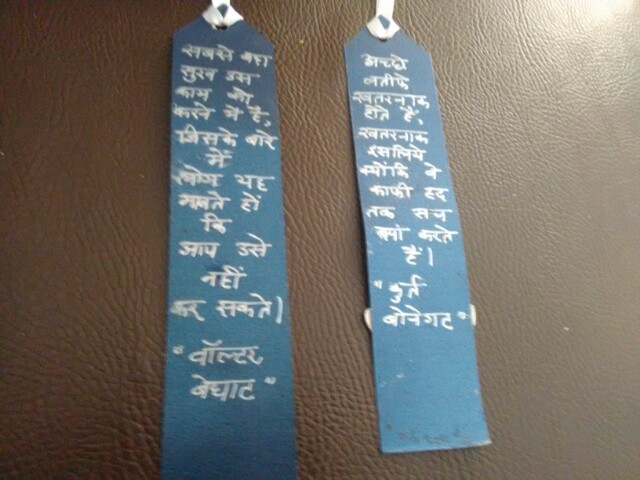 सबसे बड़ा
सुख उस
काम को
करने में है,
जिसके बारे
में
लोग यह
मानते हों
कि
आप उसे
नहीं
कर सकते।
"वॉल्टर
बेघाट"
अच्छे
लतीफे
खतरनाक
होते हैं,
खतरनाक
इसलिये
क्योंकि वे
काफी हद
तक सच
बयां करते
हैं।
"कुर्त
वोनेगट"